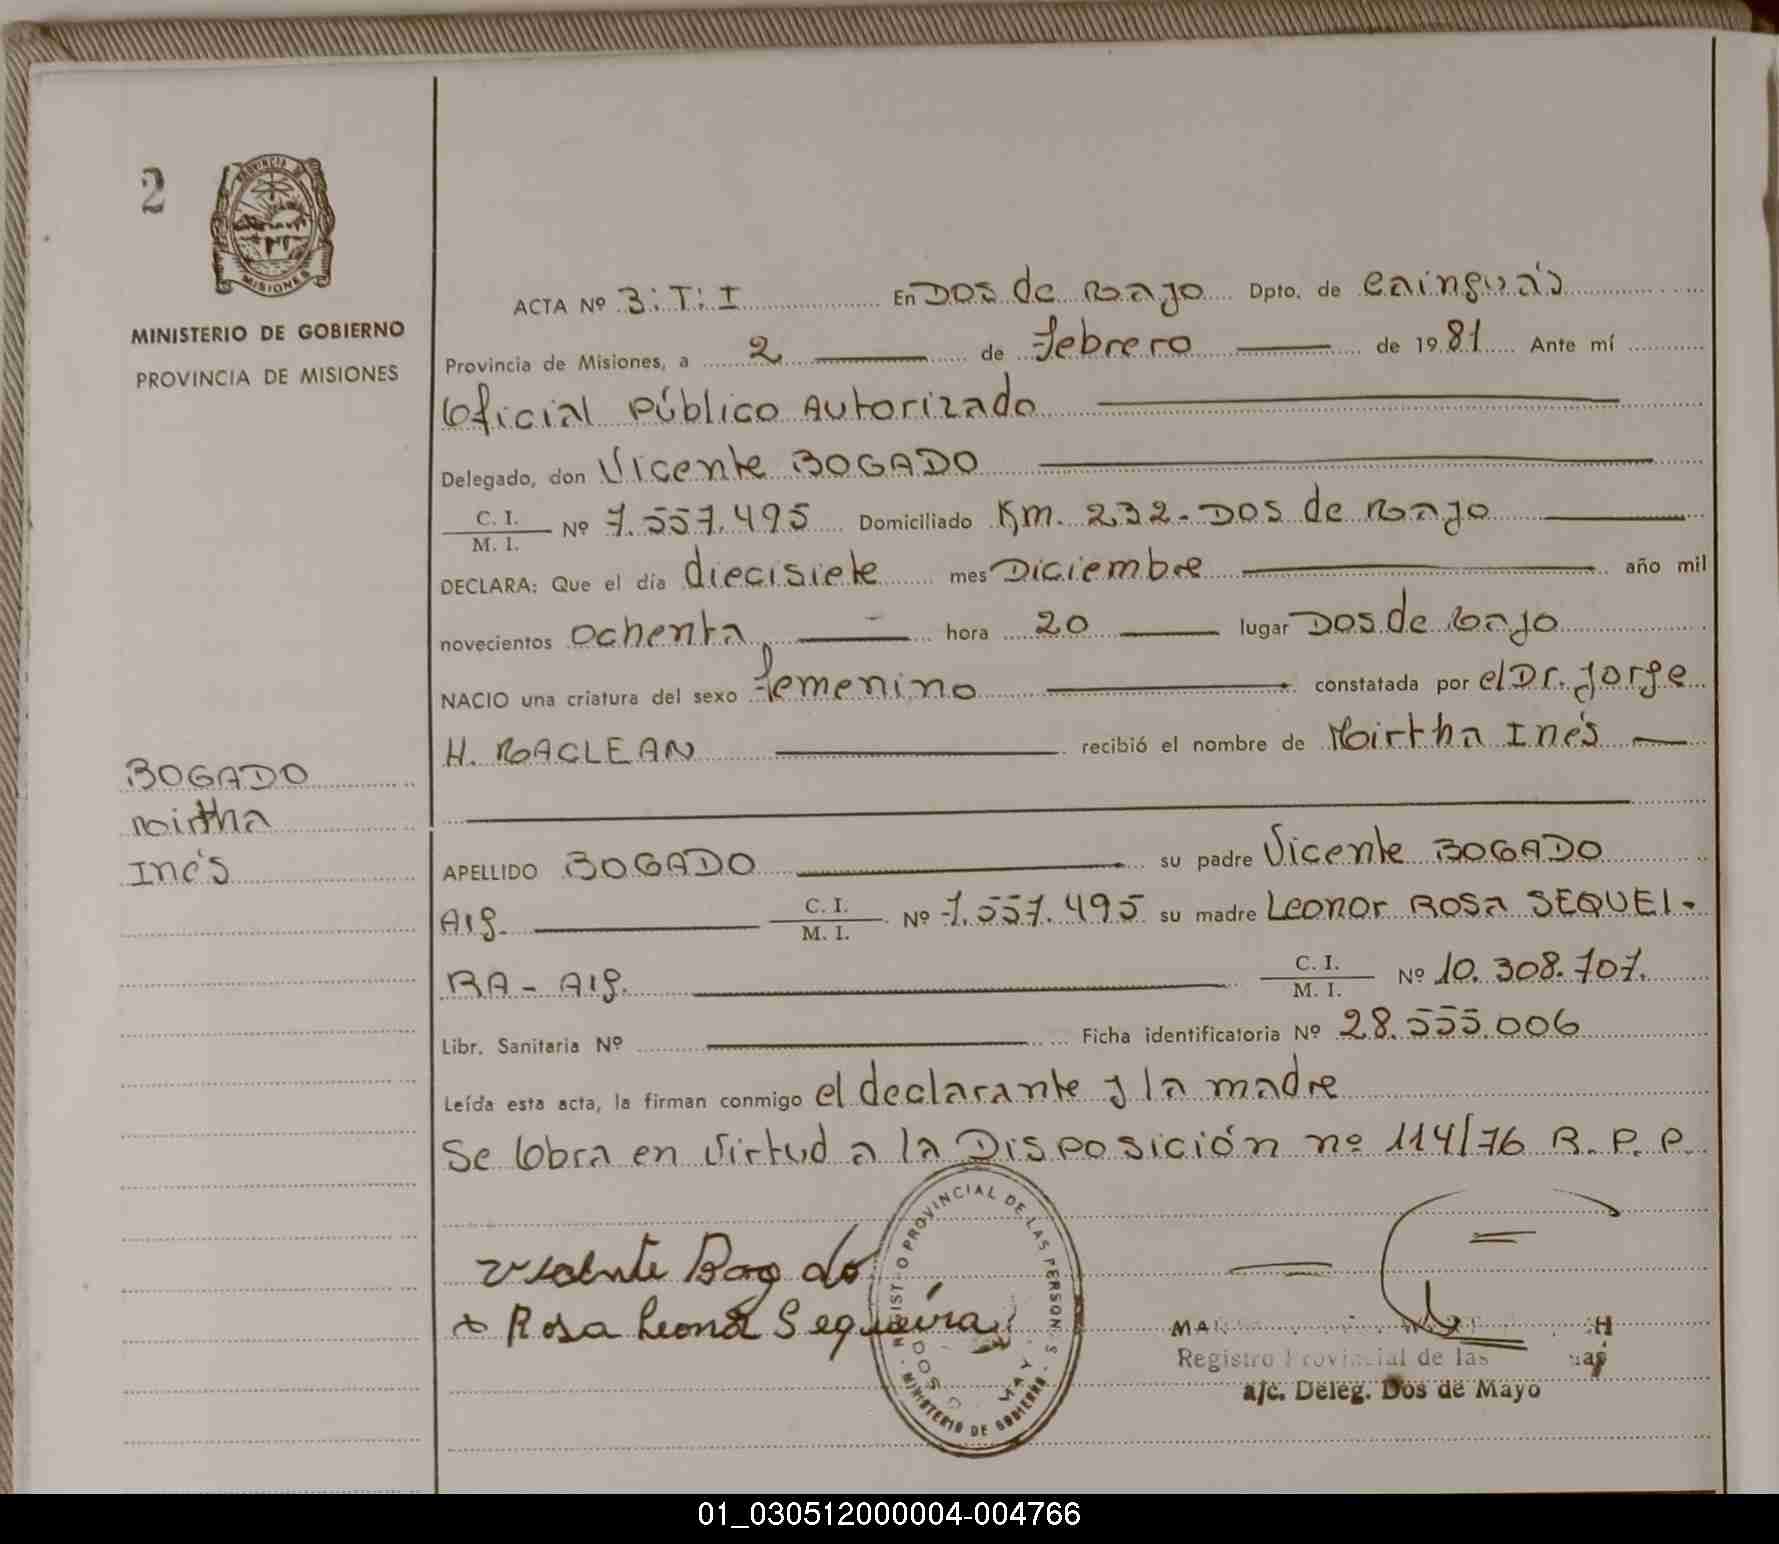 2
PROVINCIA DE
MISIONES
MINISTERIO DE GOBIERNO
PROVINCIA DE MISIONES
BOGADO
Mirtha
Inés
ACTA Nº 3: T: I En DOS de Mayo Dpto. de Cainguás
Provincia de Misiones, a 2 de Febrero de 1981 Ante mí
Oficial Público Autorizado
Delegado, don Vicente BOGADO
C. I.
M. I. Nº 7.557.495 Domiciliado Km. 232 - DOS de Mayo
DECLARA: Que el día diecisiete mes Diciembre año mil
novecientos ochenta hora 20 lugar DOS de Mayo
NACIO una criatura del sexo Femenino constatada por el Dr. Jorge
H. MACLEAN recibió el nombre de Mirtha Inés
APELLIDO BOGADO su padre Vicente BOGADO
Arg. C. I.
M. I. Nº 7.557.495 su madre Leonor ROSA SEQUEI-
RA - Arg. C. I.
M. I. Nº 10.308.707.
Libr. Sanitaria Nº Ficha identificatoria Nº 28.555.006
Leída esta acta, la firman conmigo el declarante y la madre
Se labra en virtud a la Disposición nº 114/76 R. P. P.
Vicente Bogado
Rosa Leonor Sequeira
REGISTRO PROVINCIAL DE LAS PERSONAS
DOS DE MAYO
MINISTERIO DE GOBIERNO
Registro Provincial de las
a/c. Deleg. Dos de Mayo
01_030512000004-004766